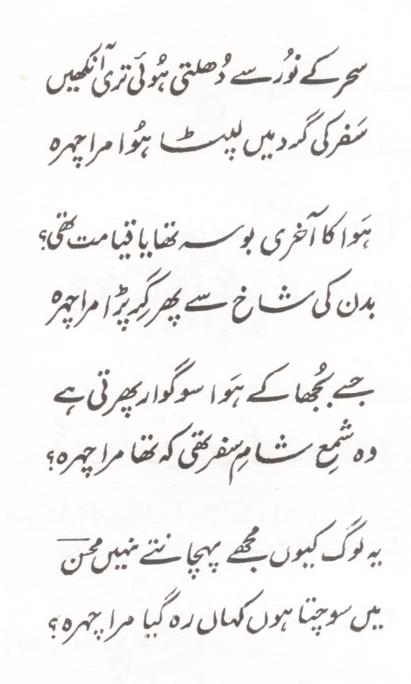 سحر کے نُور سے دُھلتی ہُوئی تری آنکھیں
سَفر کی گرد میں لپٹا ہُوا مرا چہرہ
ہَوا کا آخری بوسہ تھا یا قیامت تھی؟
بدن کی شاخ سے پھر گِر پڑا مرا چہرہ
جسے بُجھا کے ہَوا سوگوار پھرتی ہے
وہ شمعِ شامِ سفر تھی کہ تھا مرا چہرہ؟
یہ لوگ کیوں مجھے پہچانتے نہیں محسنؔ
میں سوچتا ہوں کہاں رہ گیا مرا چہرہ؟